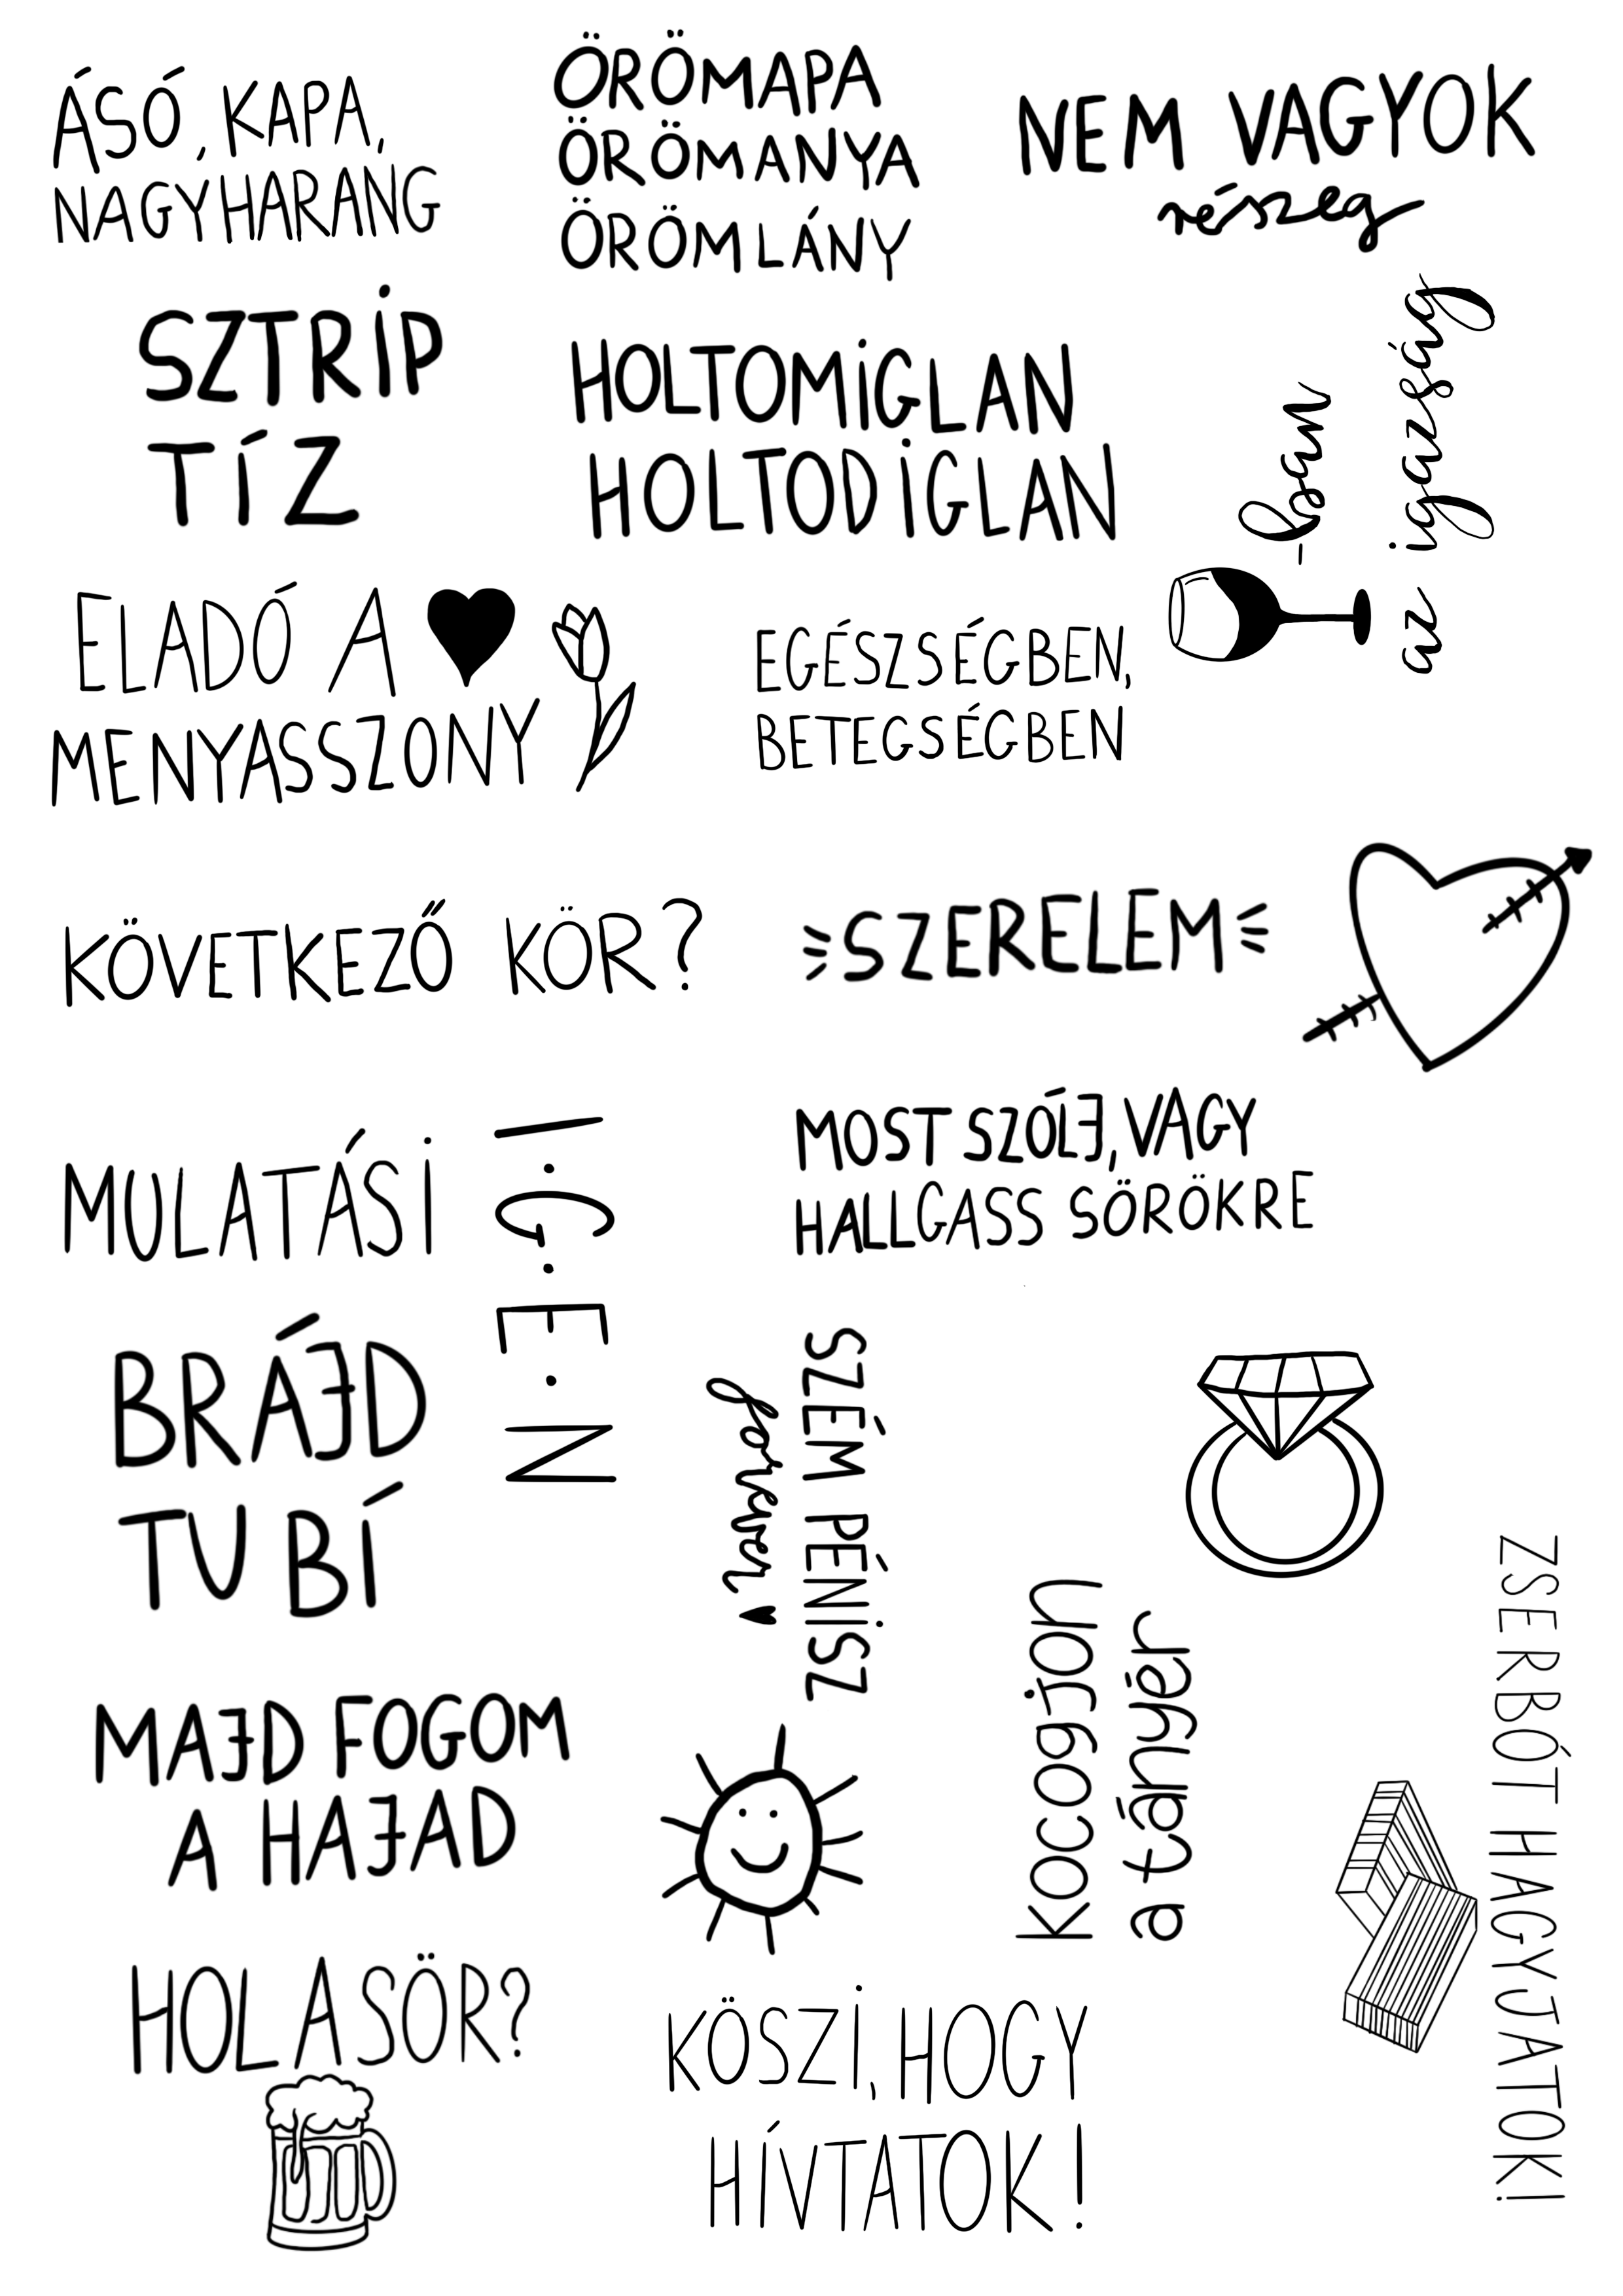 ÁSÓ, KAPA,
NAGYHARANG
ÖRÖMAPA
ÖRÖMANYA
ÖRÖMLÁNY
NEM VAGYOK
részeg
SZTRIP
TÍZ
HOLTOMIGLAN
HOLTODIGLAN
-ban
az igazság
ELADÓ A
MENYASSZONY
EGÉSZSÉGBEN,
BETEGSÉGBEN
KÖVETKEZŐ KÖR?
SZERELEM
MULATÁSI
I.G.E.N
MOST SZÓLJ, VAGY
HALLGASS SÖRÖKRE
BRÁJD
TU BÍ
SZÉM PÉNISZ
forever
kocogjon
a tányér
ZSERBÓT HAGYJATOK!
MAJD FOGOM
A HAJAD
HOLASÖR?
KÖSZI, HOGY
HÍVTATOK!